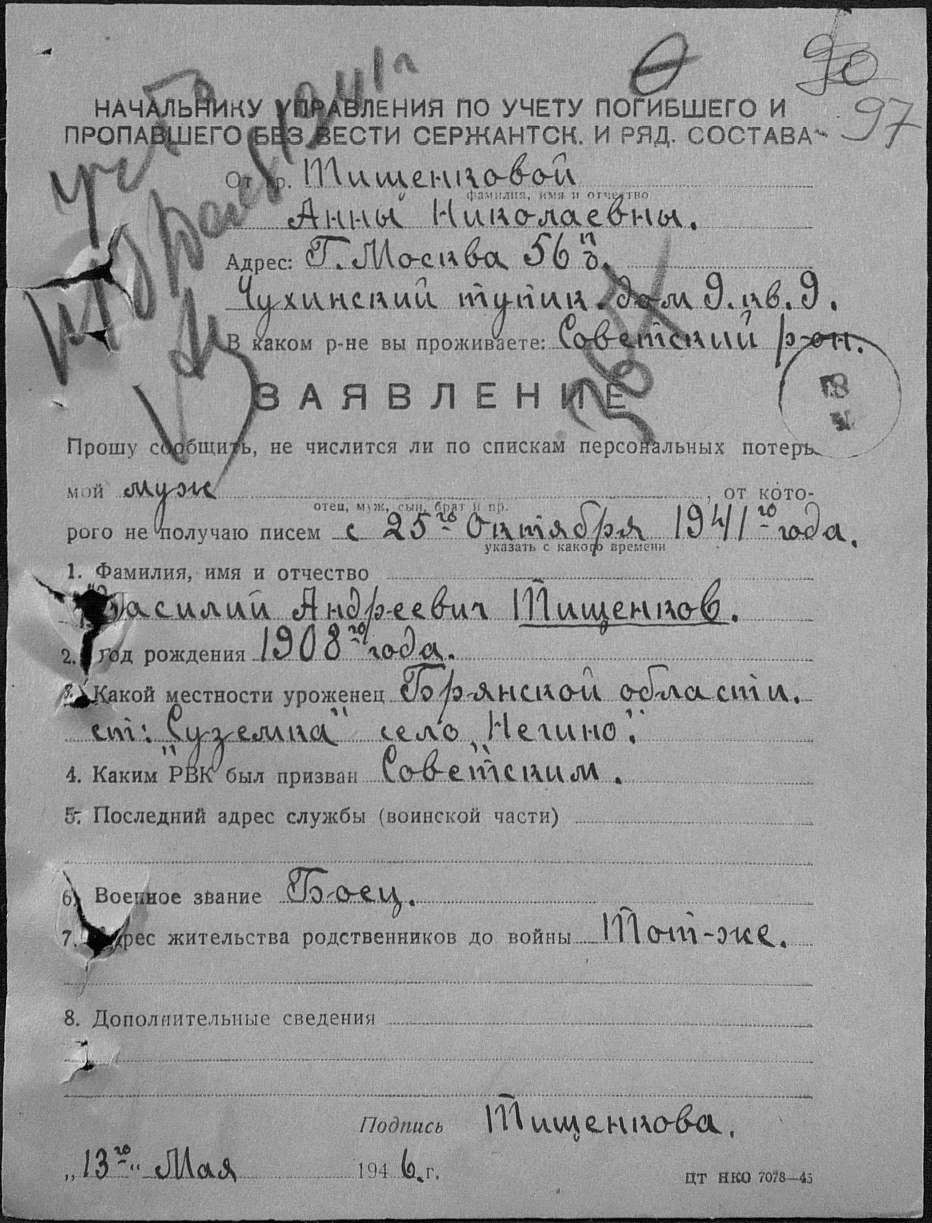 90
97
НАЧАЛЬНИКУ УПРАВЛЕНИЯ ПО УЧЕТУ ПОГИБШЕГО И
ПРОПАВШЕГО БЕЗ ВЕСТИ СЕРЖАНТСК. И РЯД. СОСТАВА
От гр. Тищенковой
фамилия, имя и отчество
Анны Николаевны.
Адрес: Г. Москва 56
Чухинский тупик дом 9. кв. 9.
В каком р-не вы проживаете: Советский р-он.
ЗАЯВЛЕНИЕ
Прошу сообщить, не числится ли по спискам персональных потерь
мой муж, от кото-
отец, муж, сын, брат и пр.
рого не получаю писем с 25го Октября 1941го года.
указать с какого времени
1. Фамилия, имя и отчество
Василий Андреевич Тищенков.
2. Год рождения 1908го года.
3. Какой местности уроженец Брянской области.
ст: "Суземка" село "Негино".
4. Каким РВК был призван Советским.
5. Последний адрес службы (воинской части)
6. Военное звание Боец.
7. Адрес жительства родственников до войны Тот-же.
8. Дополнительные сведения
Подпись Тищенкова.
„13го“ Мая 1946.г.
ЦТ НКО 7078—45